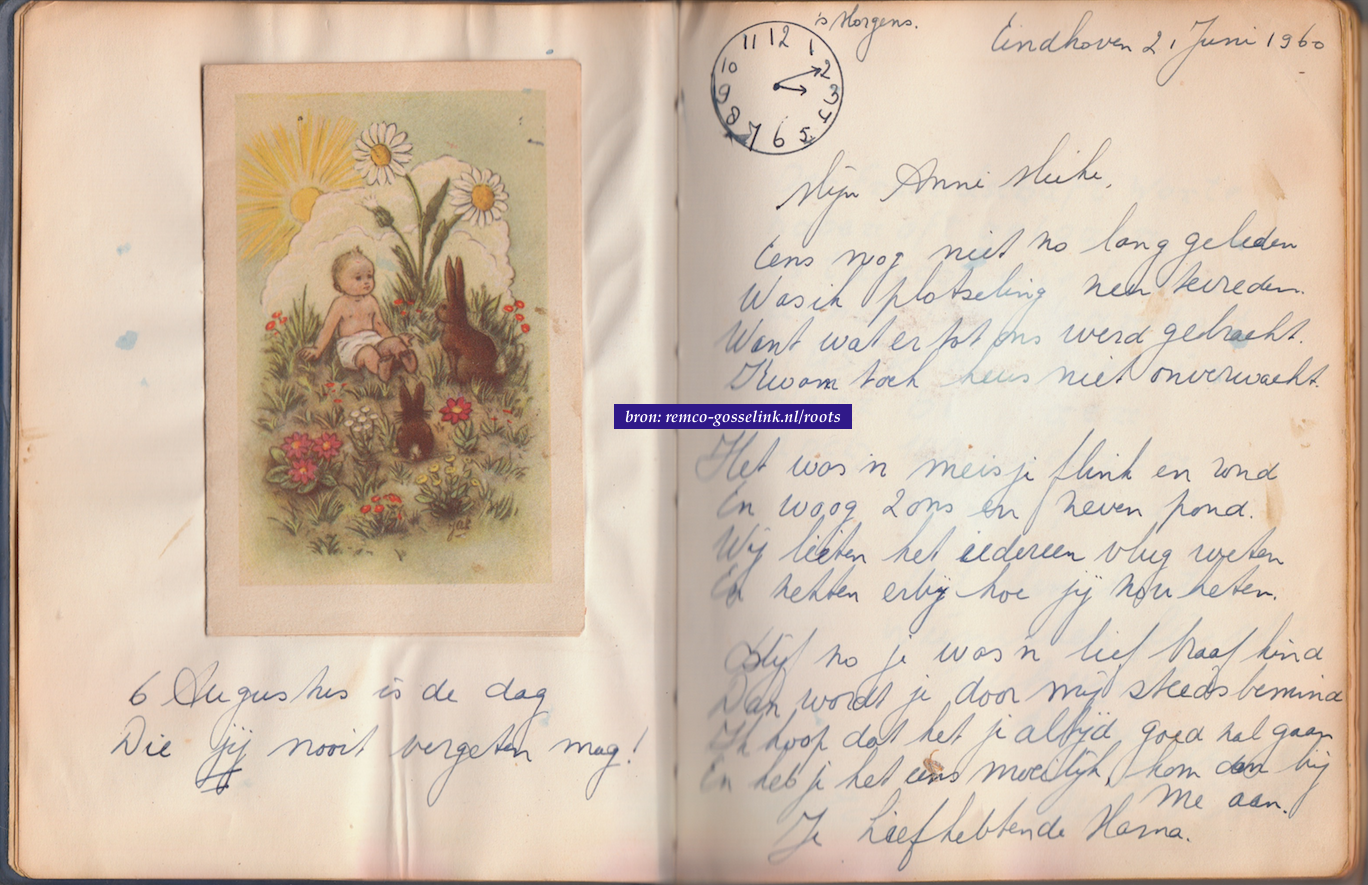 6 Augustus is de dag
Die jij nooit vergeten mag!
's Morgens.
11 12 1
10 2
9 3
8 4
7 6 5
Eindhoven 21 Juni 1960
Mijn Anne Mieke,
Eens nog niet zo lang geleden
Was ik plotseling zeer tevreden.
Want wat er tot ons werd gebracht.
Kwam toch heus niet onverwacht.
bron: remco-gosselink.nl/roots
Het was 'n meisje flink en rond
En woog 2 ons en zeven pond.
Wij lieten het iedereen vlug weten
En zetten erbij hoe jij zou heten.
Blijf zo je was 'n lief braaf kind
Dan wordt je door mij steeds bemind
Ik hoop dat het je altijd goed zal gaan
En heb je het eens moeilijk, kom dan bij
me aan.
Je Liefhebbende Mama.